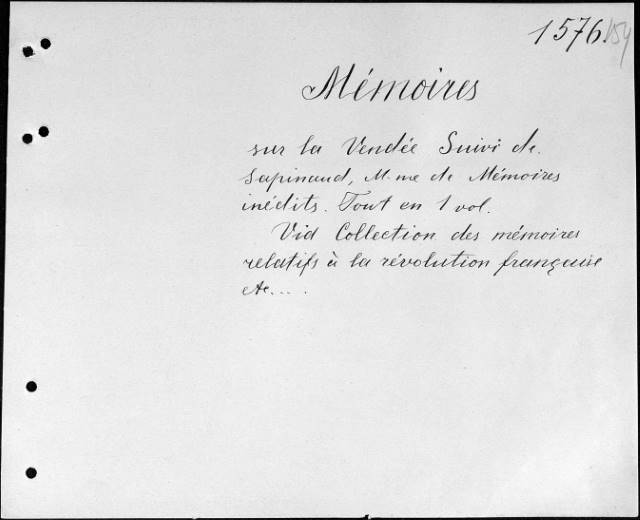 1576.
154
Mémoires
sur la Vendée Suivi de.
Sapinaud, M-me de Mémoires
inédits. Tout en 1 vol.
Vid Collection des mémoires
relatifs à la révolution française
etc....